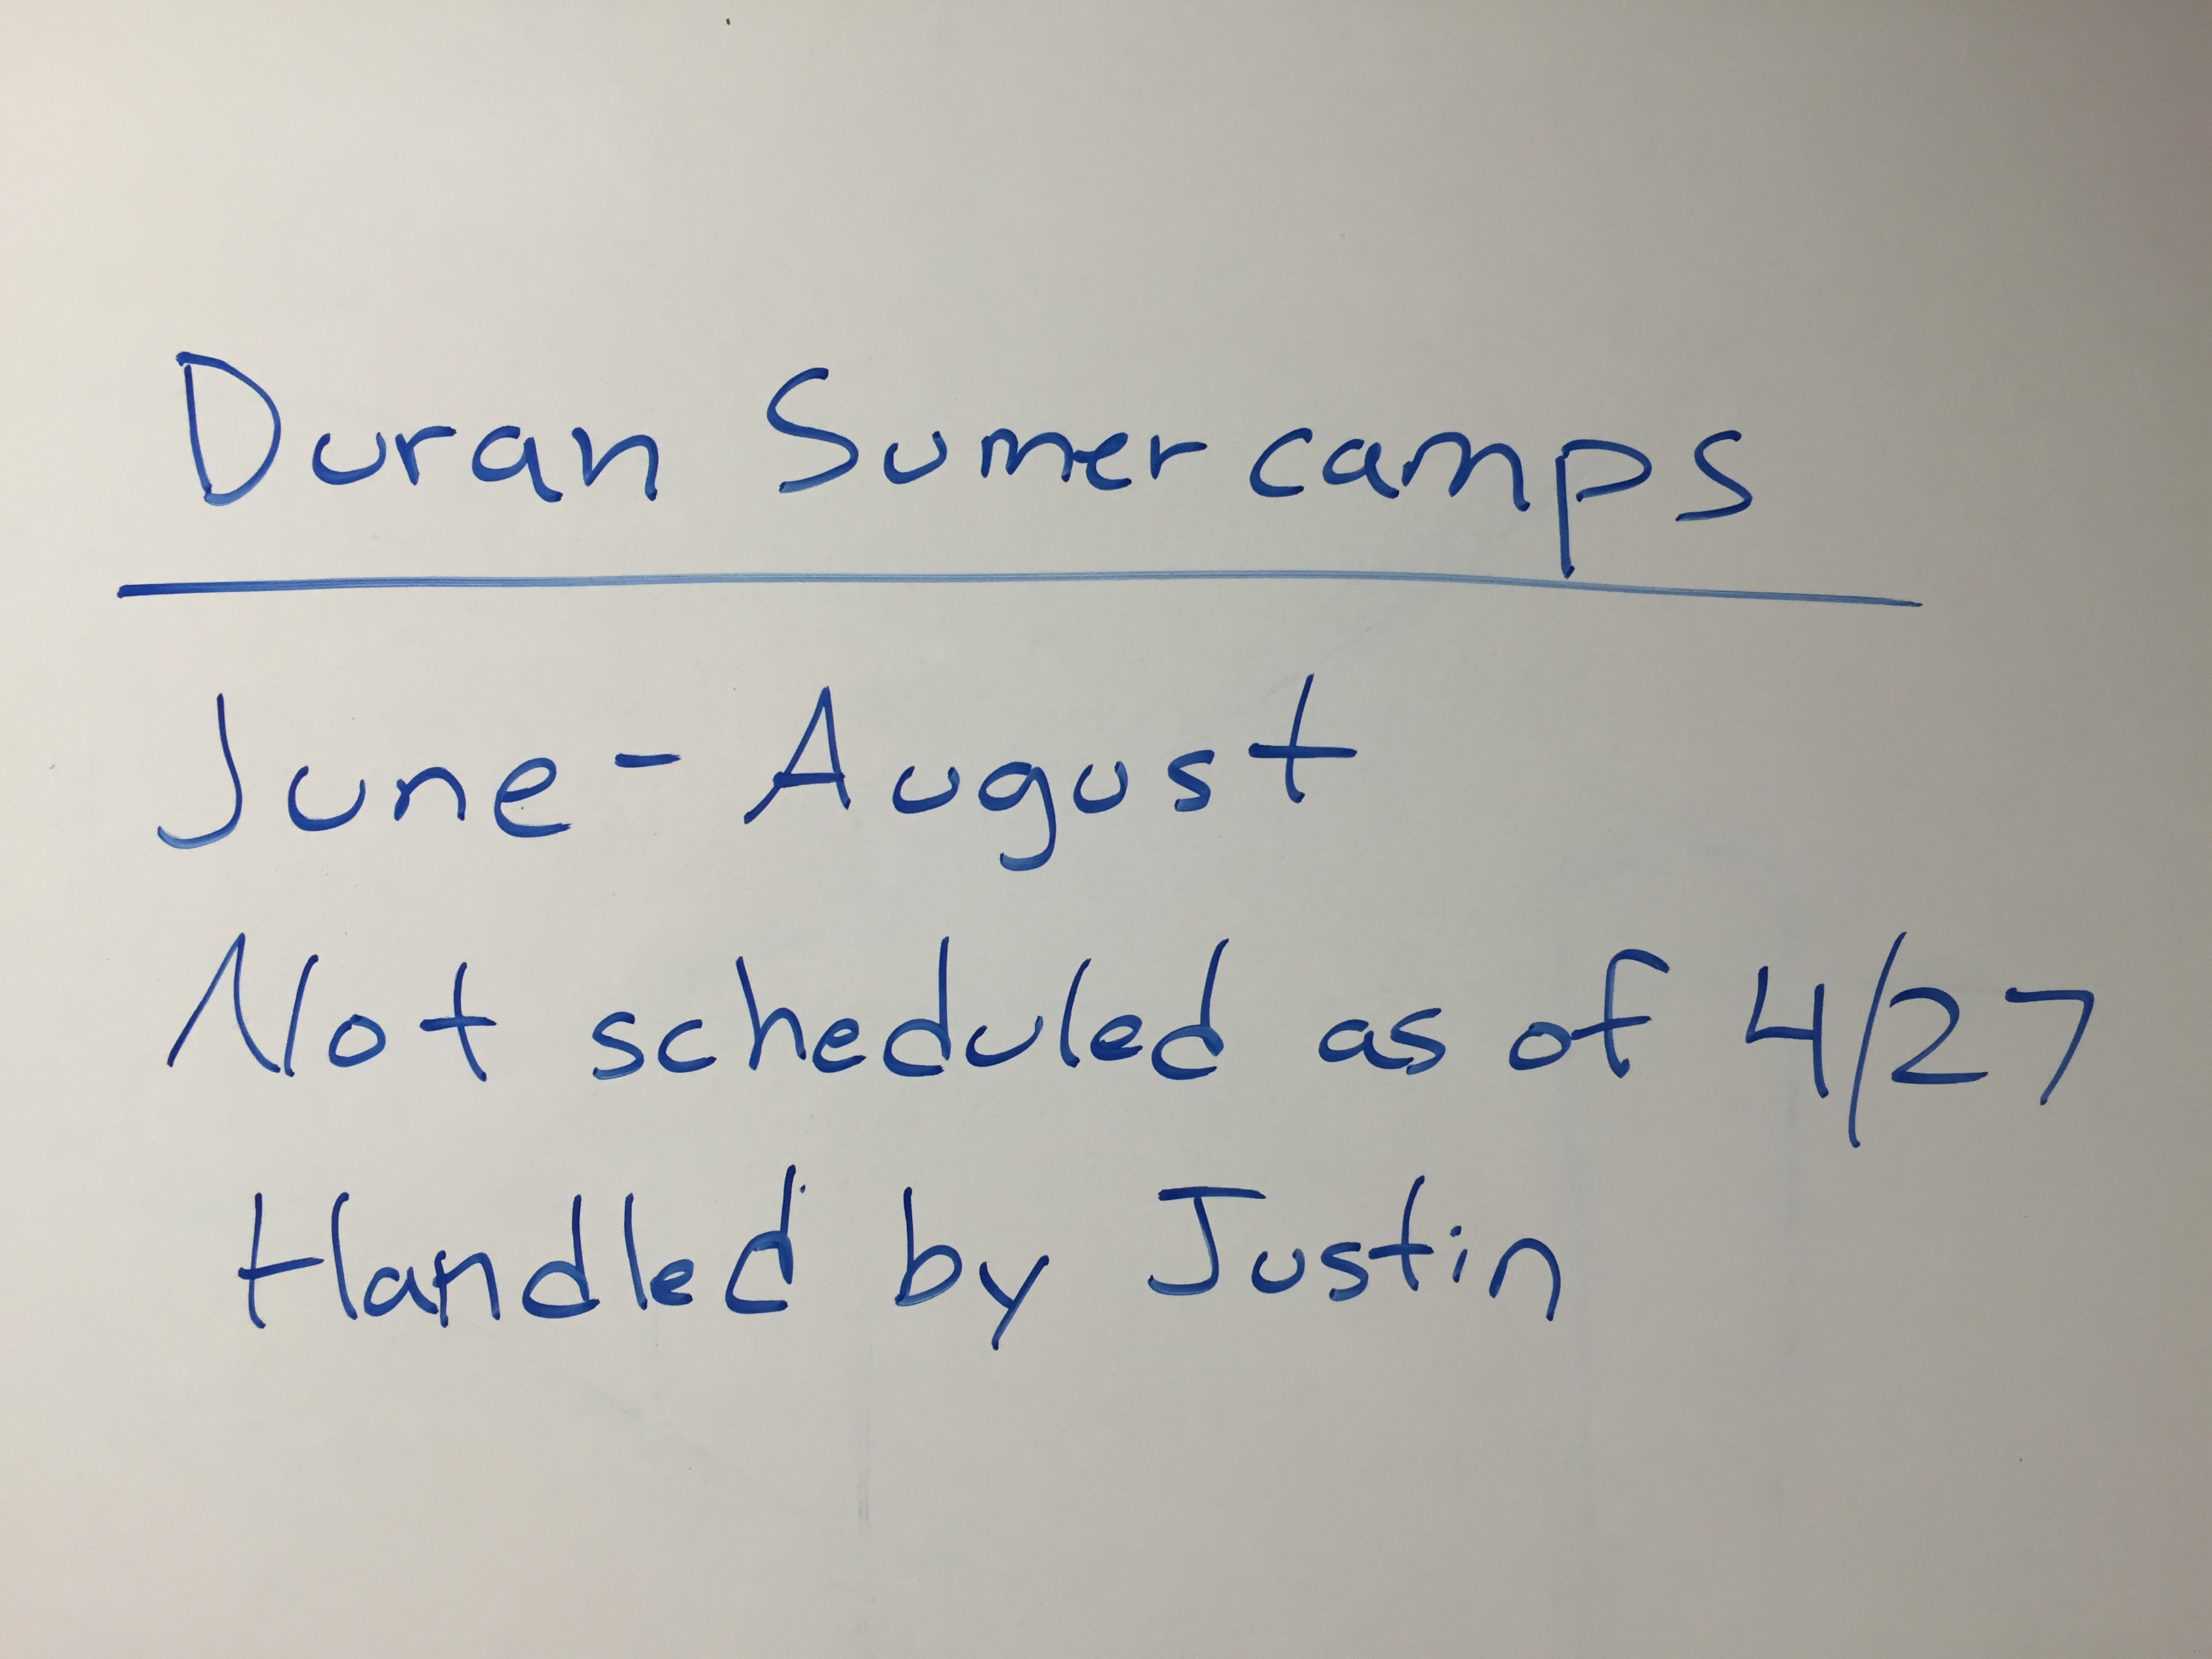 Duran Sumer camps
June - August
Not scheduled as of 4/27
Handled by Justin